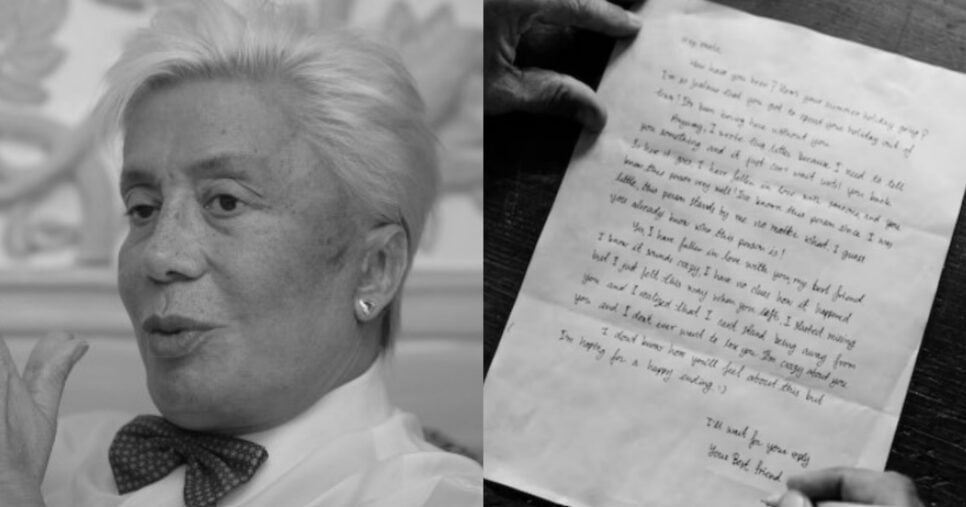 Hey mate,
How have you been? Hows your summer holiday going?
I'm so jealous that you get to spend your holiday out of
town! Its been boring here without you.
Anyway, I wrote this letter because I need to tell
you something and it just can't wait until you back.
So here it goes. I have fallen in love with someone and you
know this person very well! I've known this person since I was
little, this person stands by me no matter what. I guess
you already know who this person is!
Yes, I have fallen in love with you, my best friend.
I know it sounds crazy, I have no clues how it happened
but I just felt this way when you left. I started missing
you and I realised that I cant stand being away from
you and I dont ever want to lose you. I'm crazy about you
I dont know how you'll feel about this but
I'm hoping for a happy ending :)
I'll wait for your reply
Your Best friend